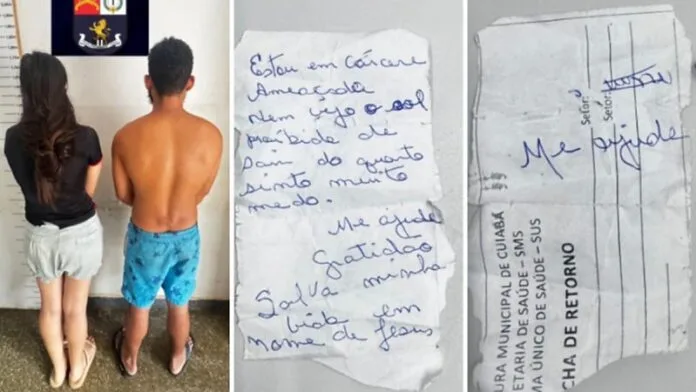 Estou em Cárcere
Ameaçada
Nem vejo o sol
proibida de
sair do quarto
sinto muito
medo.
Me ajude
Gratidão
Salva minha
vida em
nome de Jesus
Me ajude
Setor:
Setor:
URA MUNICIPAL DE CUIABÁ
ETARIA DE SAÚDE - SMS
MA ÚNICO DE SAÚDE - SUS
CHA DE RETORNO